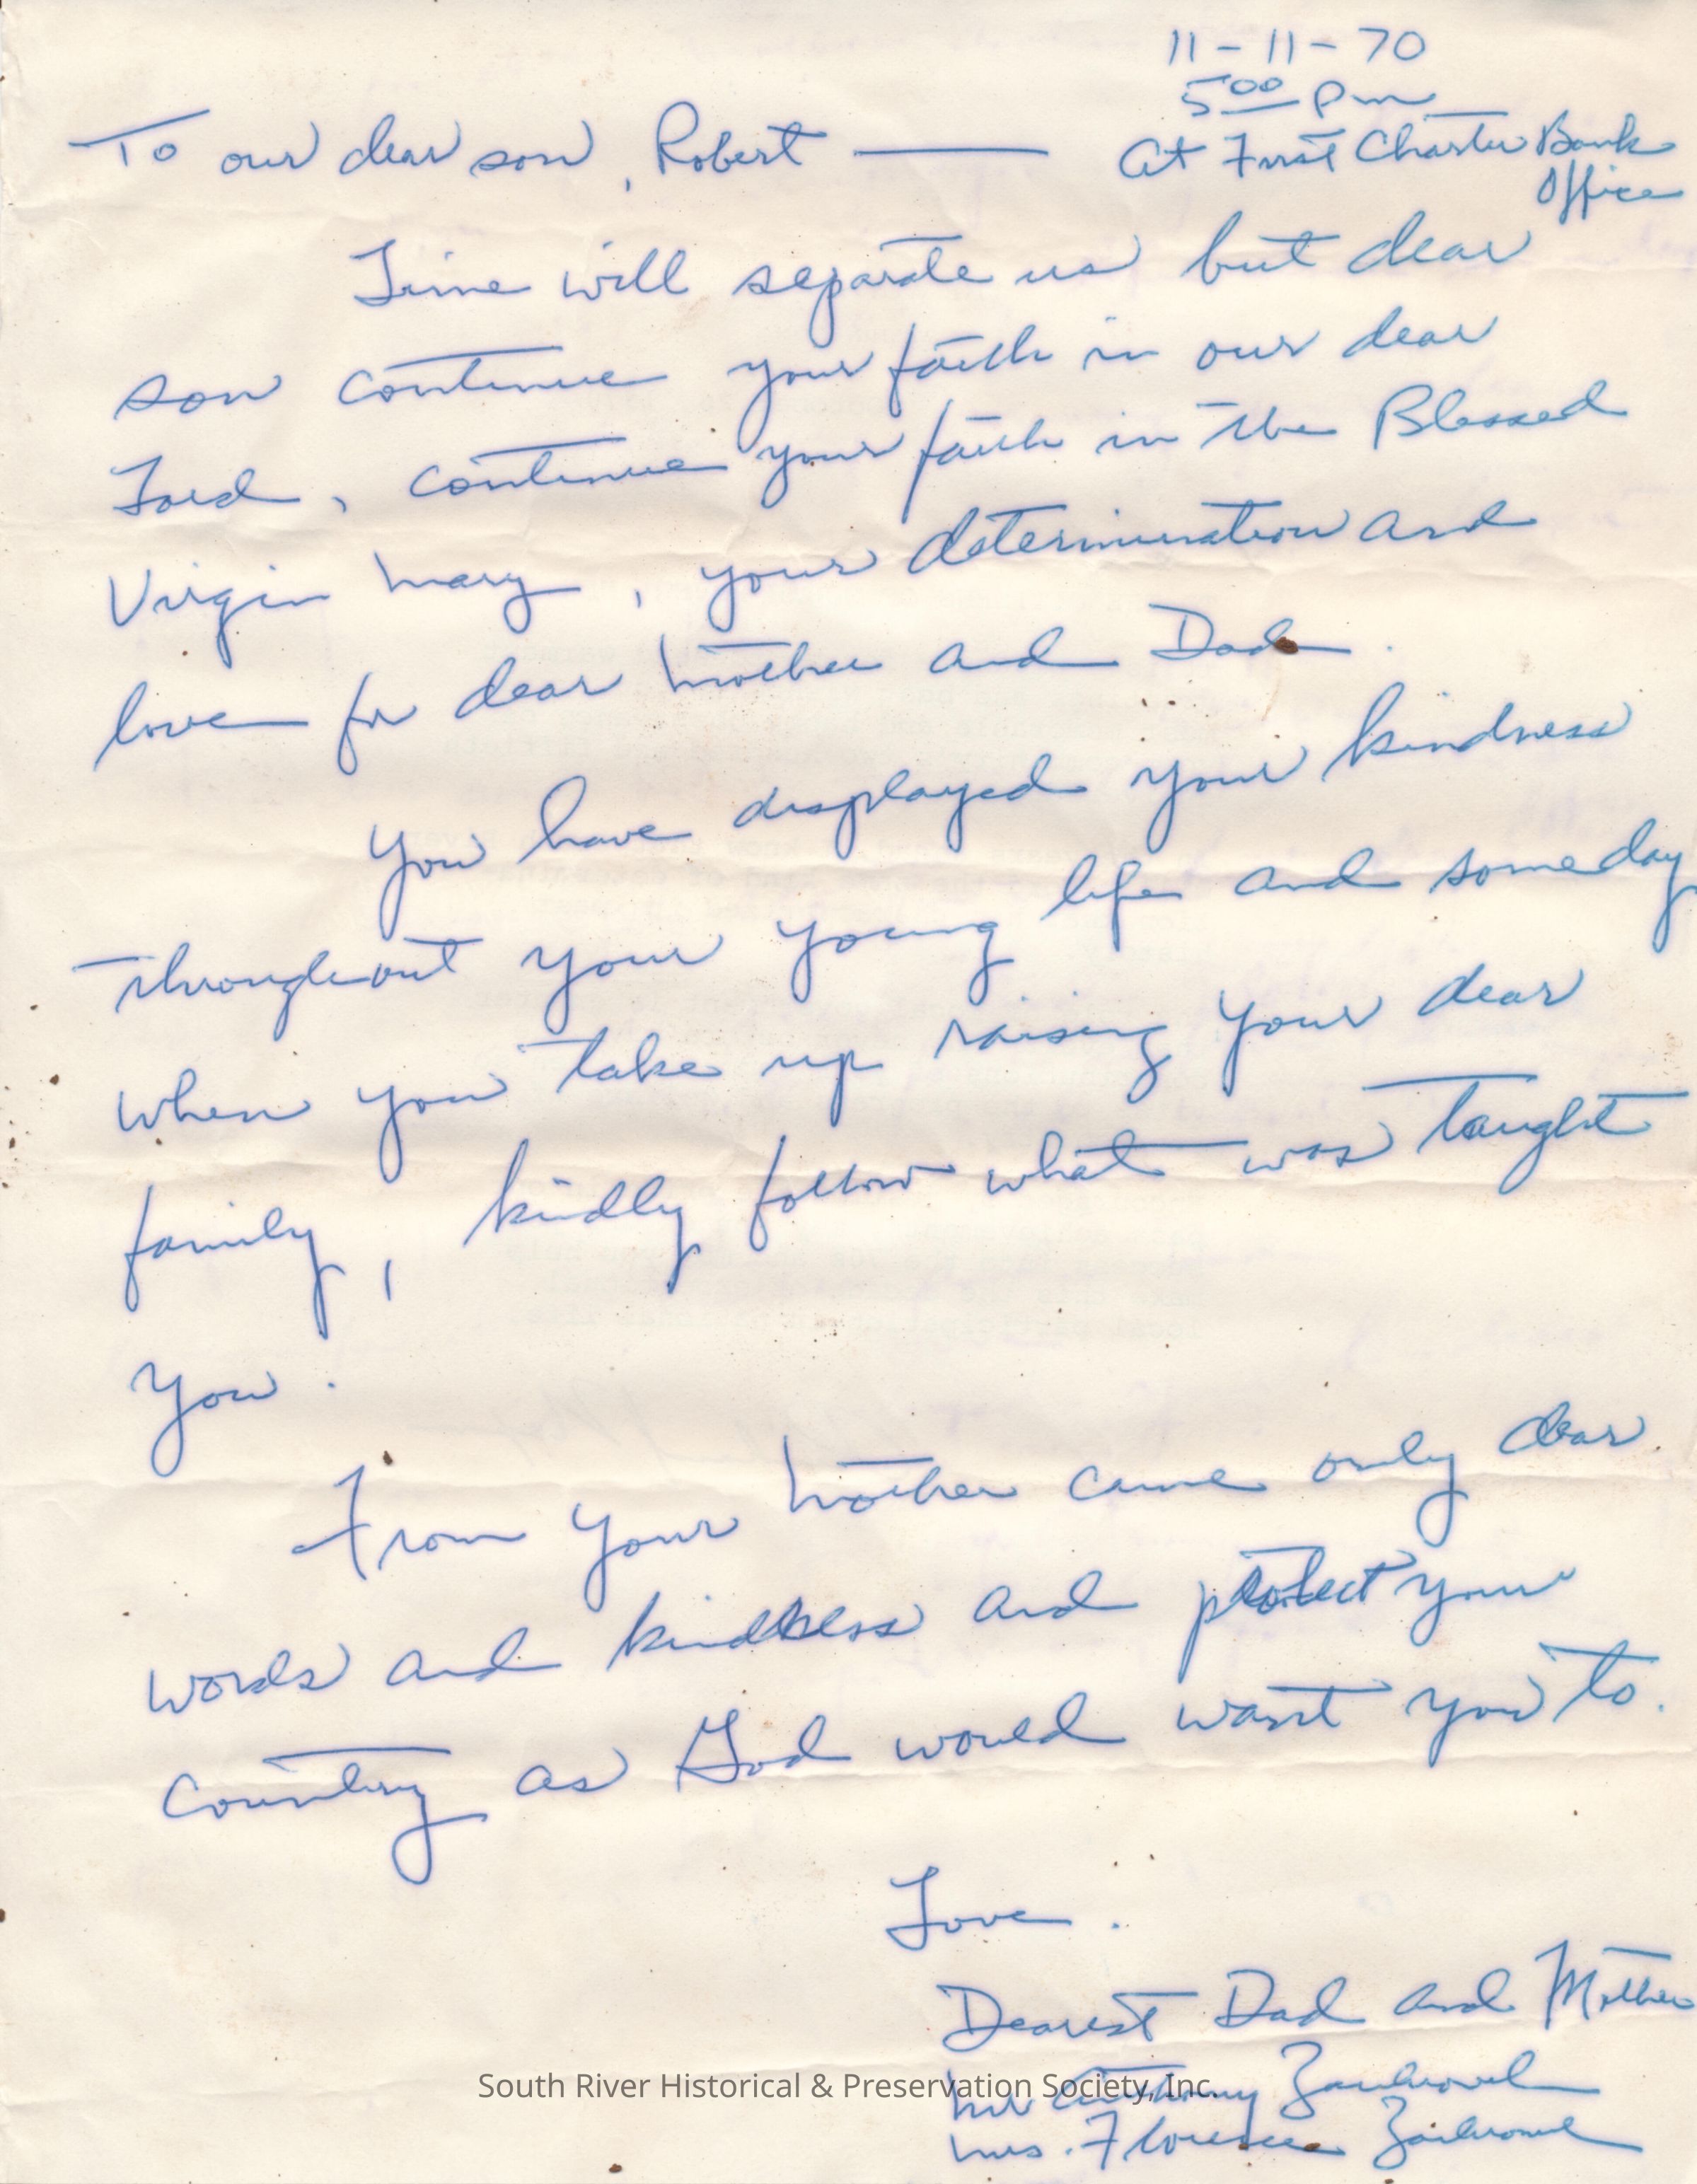 11-11-70
5:00 pm
To our dear son, Robert —
At First Charter Bank
Office
Time will separate us but dear
son continue your faith in our dear
Lord, continue your faith in the Blessed
Virgin Mary, your determination and
love for dear Mother and Dad.
You have displayed your kindness
throughout your young life and someday
when you take up raising your dear
family, kindly follow what was taught
you.
From your Mother came only dear
words and kindness and protect your
country as God would want you to.
Love.
Dearest Dad and Mother
South River Historical & Preservation Society, Inc.
Mr Anthony
Mrs. Florence